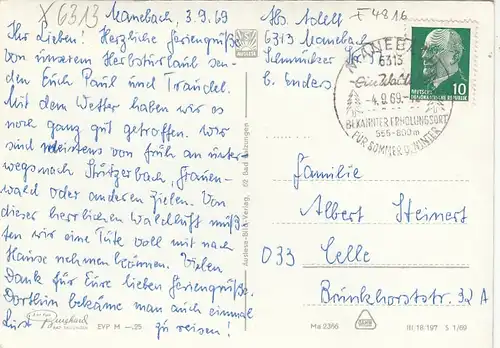 X 6313
Manebach, 3.9.69
Ihr Lieben! Herzliche Feriengrüße
von unserem Herbsturlaub sen-
den Euch Paul und Traudel.
Mit dem Wetter haben wir es
noch ganz gut getroffen. Wir
sind meistens von früh an unter-
wegs nach Stützerbach, Frauen-
wald oder anderen Zielen. Von
dieser herrlichen Waldluft müß-
ten wir eine Tüte voll mit nach
Hause nehmen können. Vielen
Dank für Eure lieben Feriengrüße.
Dorthin bekäme man auch einmal
Lust zu reisen!
Burghard
EVP M —,25
Auslese-Bild-Verlag, 62 Bad Salzungen
I 4816
Abs. Adolf
6313 Manebach
b. Enders
MANEBACH
6313
-4.9.69-
BEKANNTER ERHOLUNGSORT
555-800m
FÜR SOMMER U. WINTER
10
DEUTSCHE
DEMOKRATISCHE REPUBLIK
Familie
Albert Steinert
033 Celle
Brunkhorststr. 32 A
Ma 2366
III/18/197 S 1/69